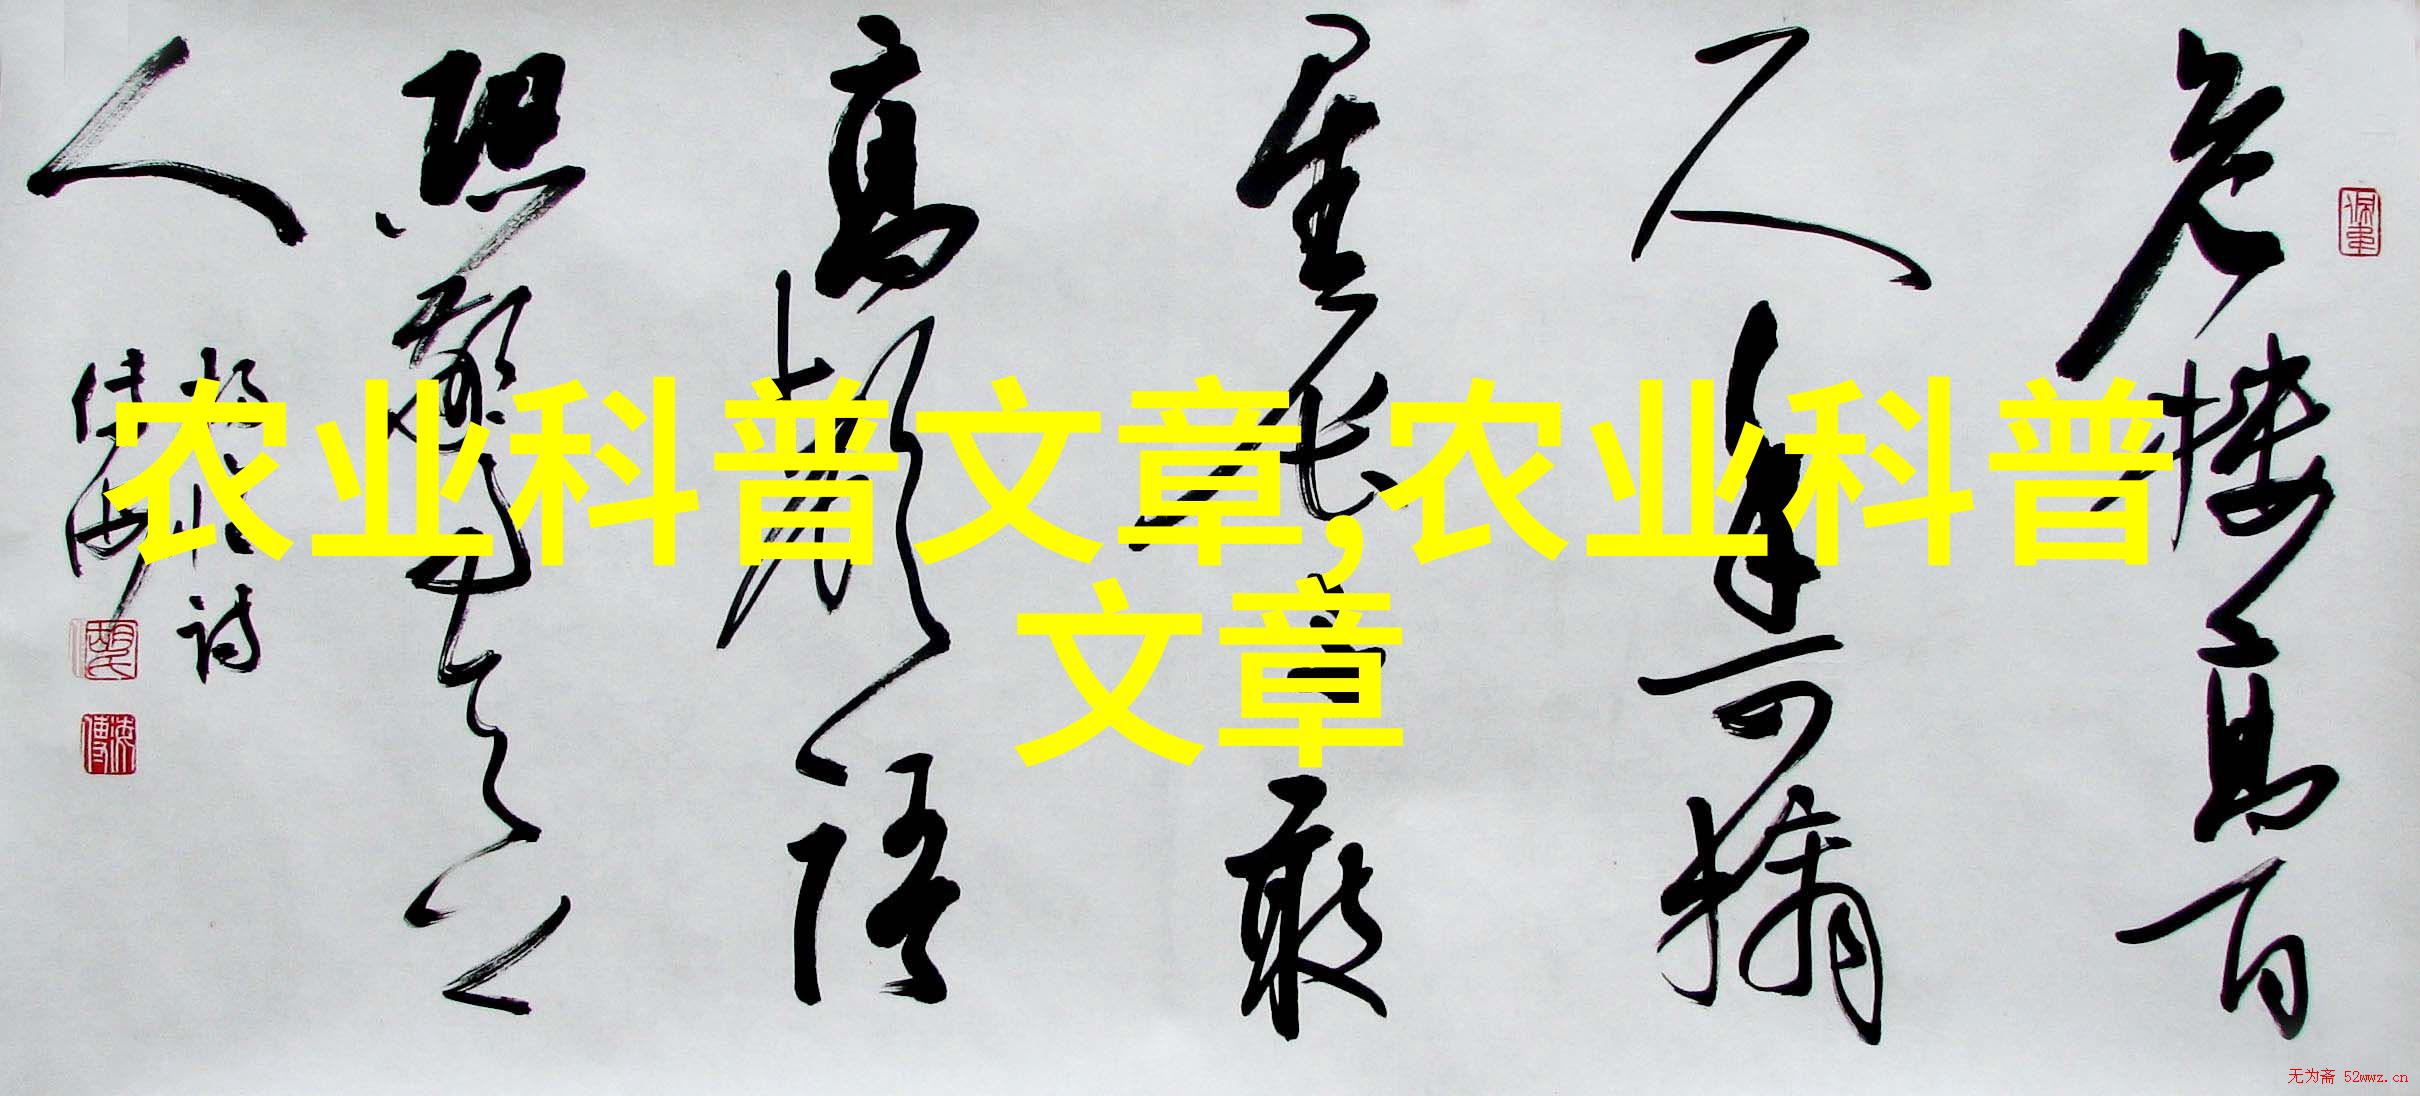 农业科普文章,农业科普
文章
危楼高百
尺手可摘
星辰不敢
高声语
恐惊天上
人
诗
传海
无为斋 52wwz.cn